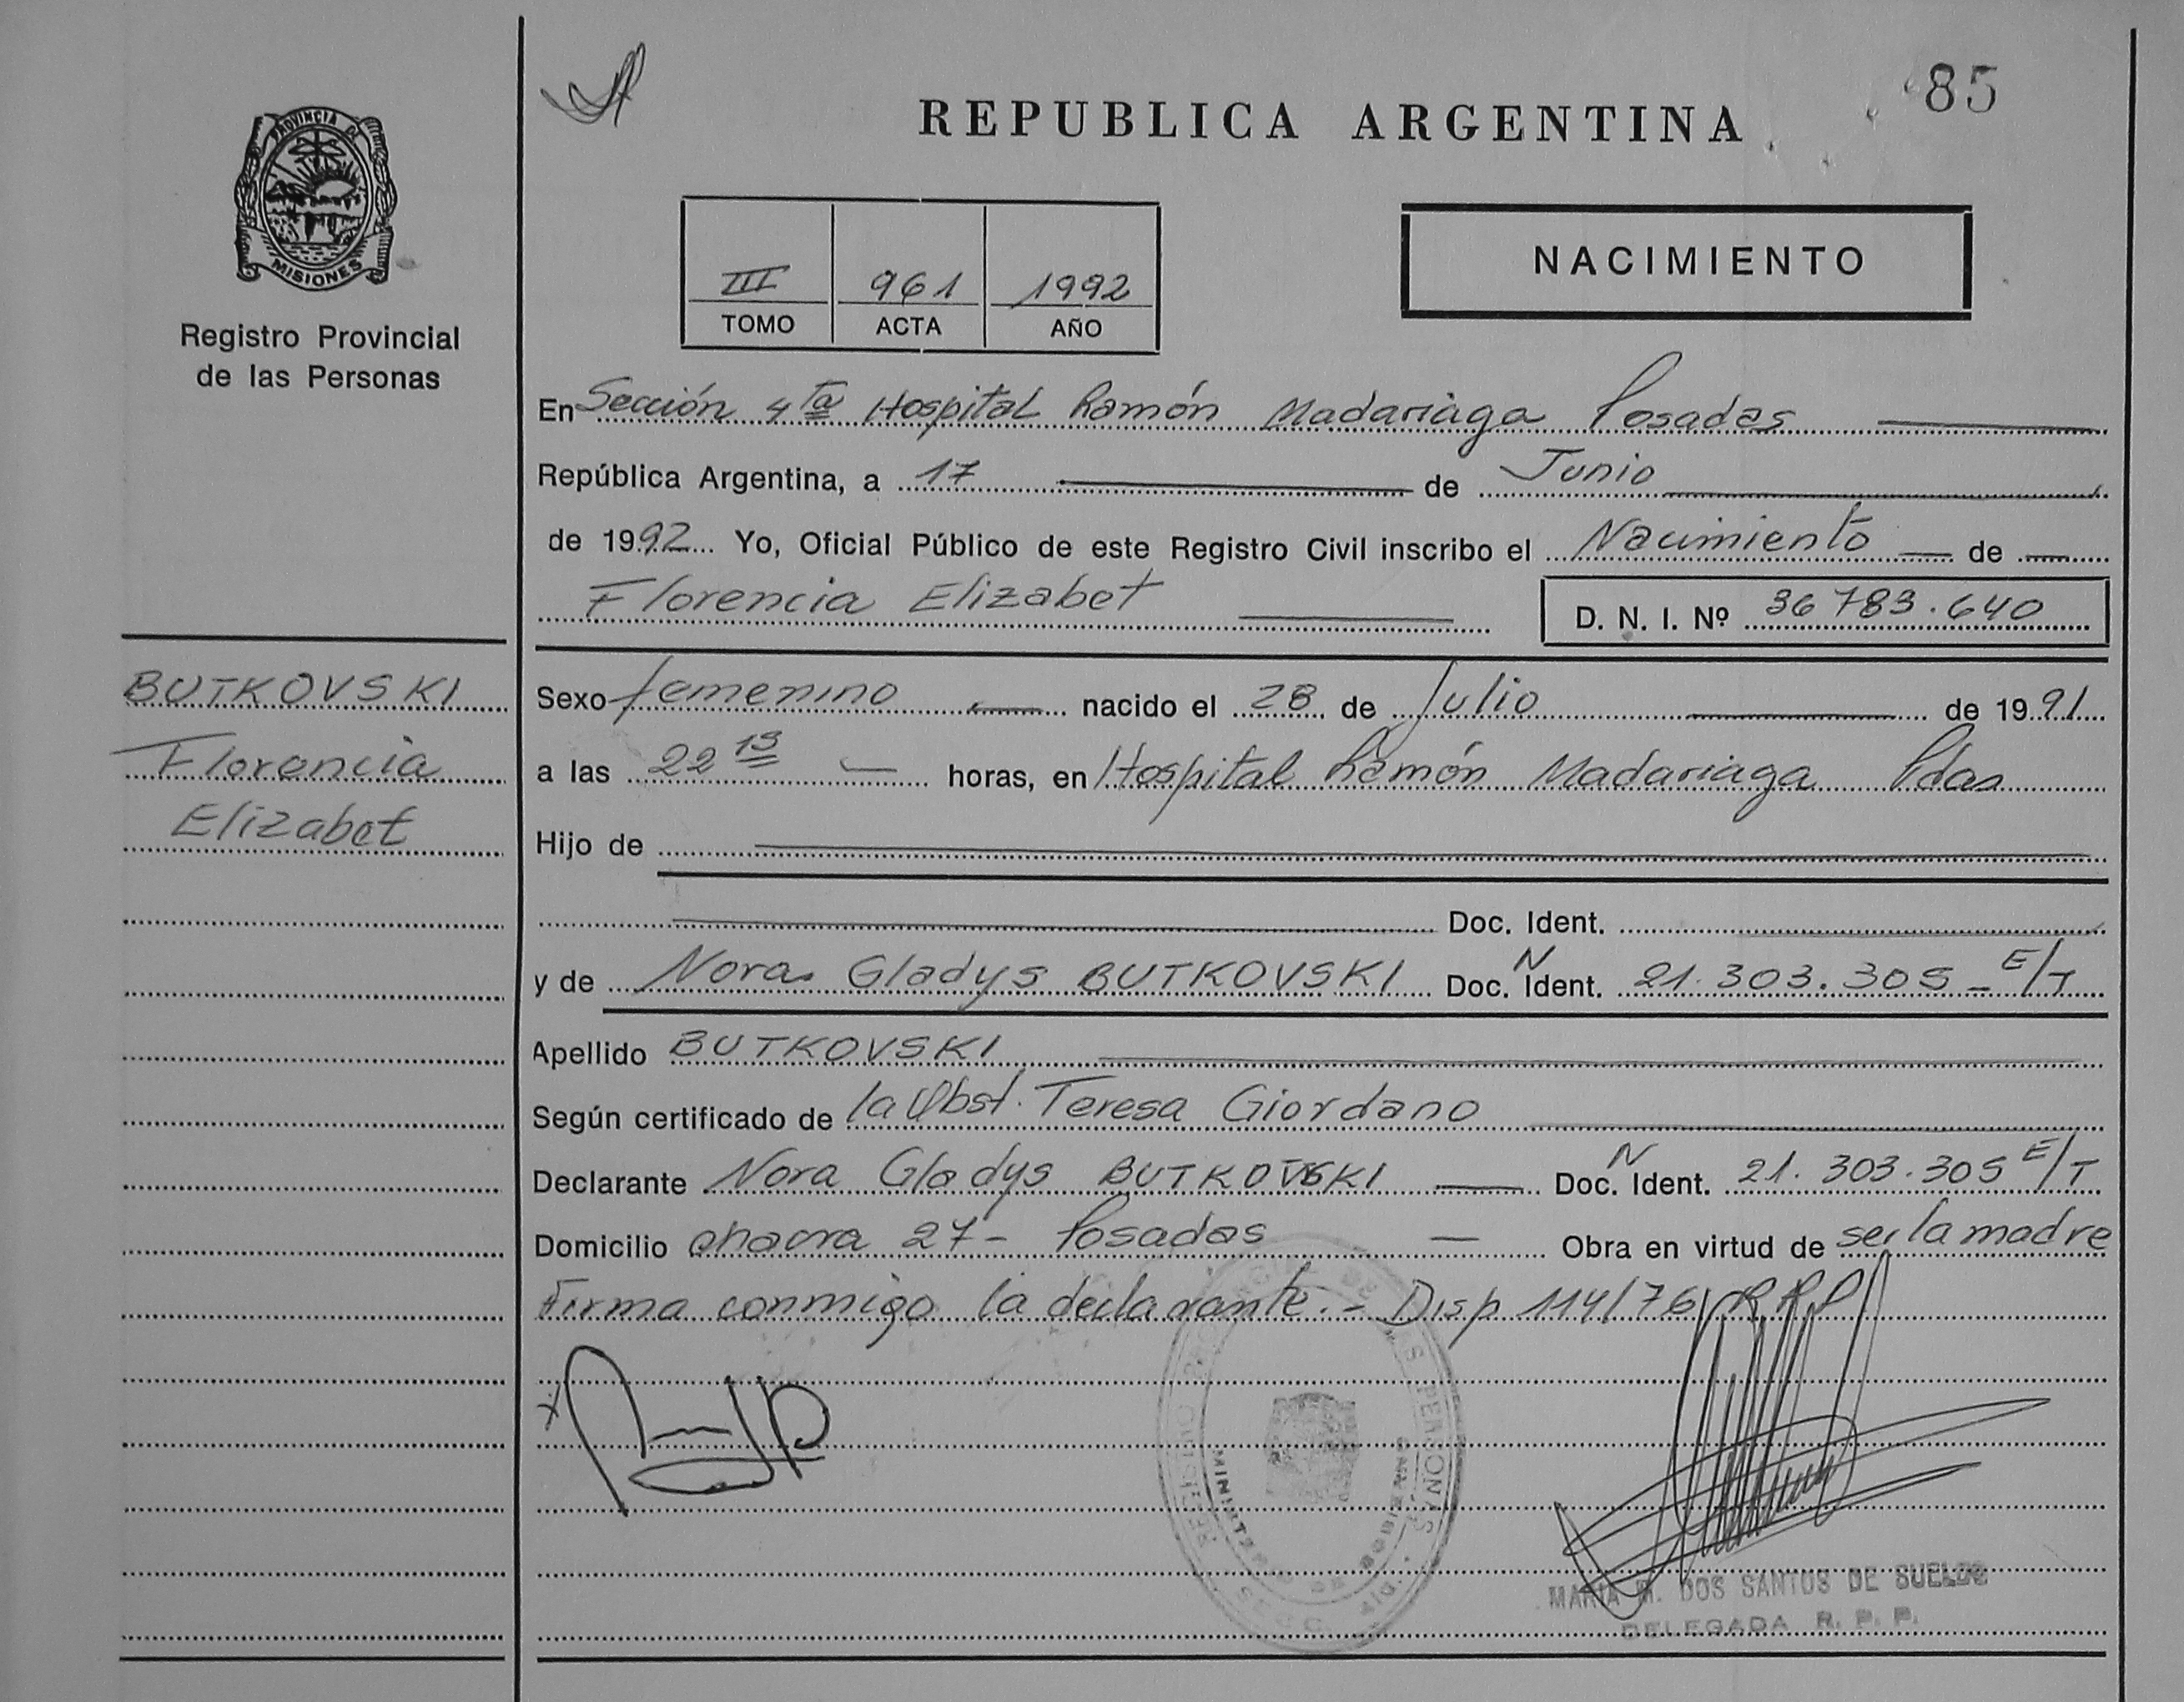 85
REPUBLICA ARGENTINA
PROVINCIA DE
MISIONES
Registro Provincial
de las Personas
III 961 1992
TOMO ACTA AÑO
NACIMIENTO
En Sección 4ta Hospital Ramón Madariaga Posadas
República Argentina, a 17 de Junio
de 1992 Yo, Oficial Público de este Registro Civil inscribo el Nacimiento de
Florencia Elizabet
D. N. I. Nº 36783.640
BUTKOVSKI
Florencia
Elizabet
Sexo femenino nacido el 28 de Julio de 1991
a las 22 15 horas, en Hospital Ramón Madariaga Pdas
Hijo de
Doc. Ident.
y de Nora Gladys BUTKOVSKI Doc. N Ident. 21.303.305 - E/T
Apellido BUTKOVSKI
Según certificado de la Obst. Teresa Giordano
Declarante Nora Gladys BUTKOVSKI Doc. N Ident. 21.303.305 E/T
Domicilio chacra 27 - Posadas Obra en virtud de ser la madre
Firma conmigo la declarante. - Disp 114/76 RPP
MINISTERIO DE GOBIERNO
DE LAS PERSONAS
MARIA M. DOS SANTOS DE SUELDO
DELEGADA R. P. P.